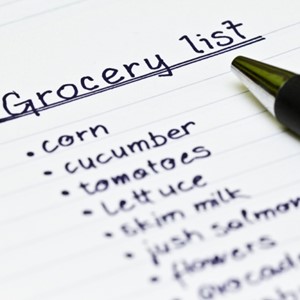 Grocery list
• corn
• cucumber
• tomatoes
• lettuce
• skim milk
• jush salmon
• flowers